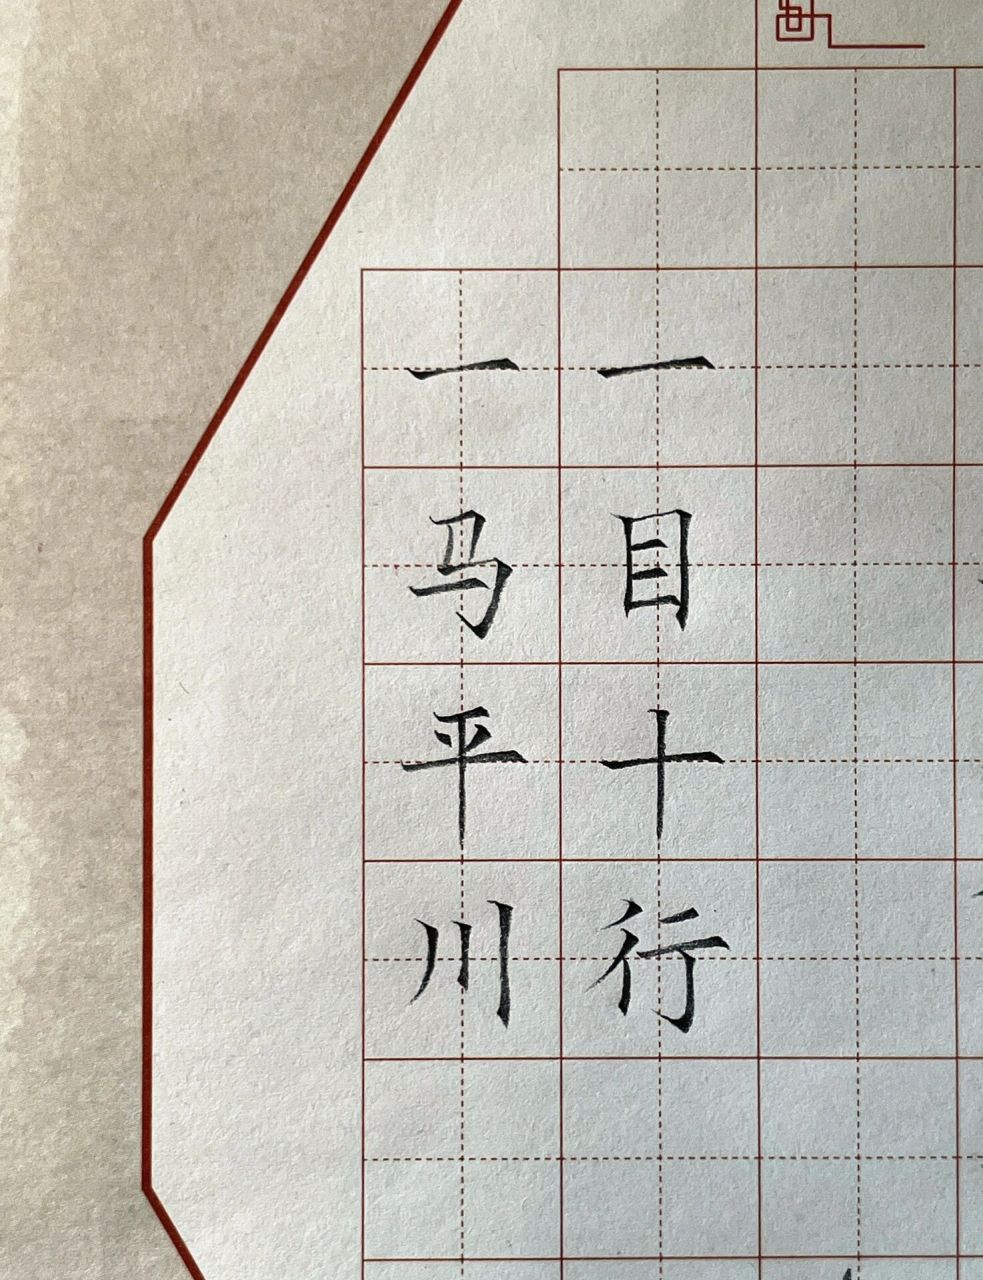 一目十行
一马平川